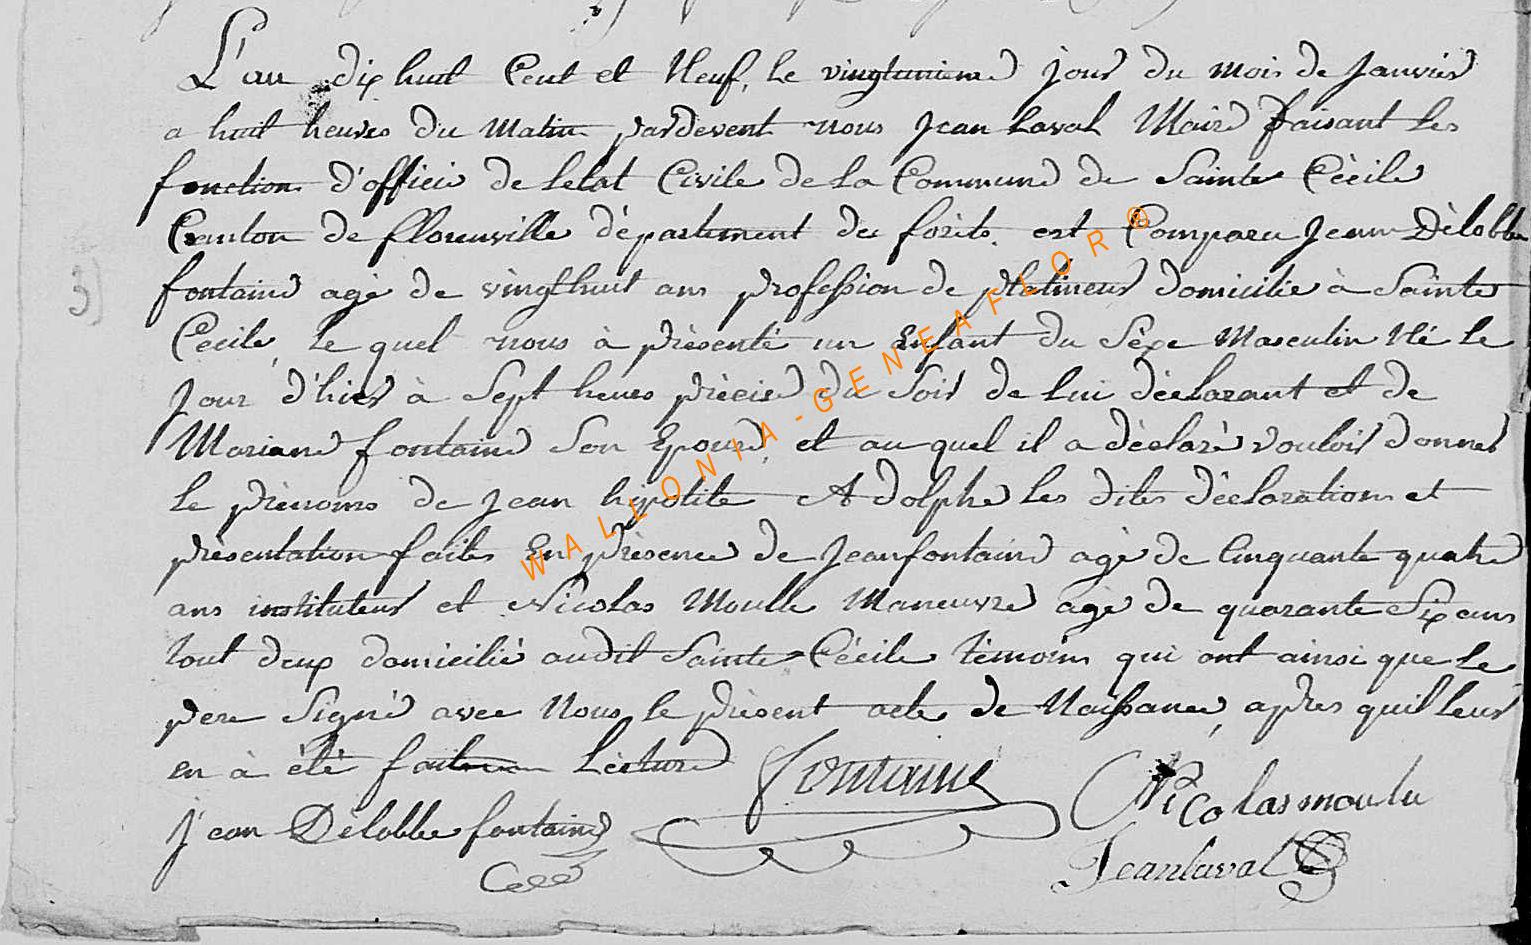 L'an dix huit Cent et Neuf, le vingtunieme jour du mois de Janvier
a huit heures du Matin pardevent nous Jean Laval Maire faisant les
fonction d'officie de letat Civile de la Commune de Sainte Cécile
Canton de florenville département des forêts. est Comparu Jean Délobbe
fontaine agé de vingthuit ans profession de platineur domicilié à Sainte
3)
Cécile, le quel nous à présenté un Enfant du Séxe Masculin Né le
Jour d'hier à Sept heures précise du Soir de lui déclarant et de
Mariane fontaine Son Epouse, et au quel il a déclaré vouloir donner
le prénoms de Jean hipolite Adolphe les dites déclarations et
présentation faites En présence de Jean fontaine agé de Cinquante quatre
ans instituteur et Nicolas Moulle Maneuvre agé de quarante Six ans
tout deux domicilié audit Sainte Cécile témoins qui ont ainsi que le
pere Signé avec Nous le présent acte de Naissance, apres quil leur
en à été fait Lécture
fontaine
Nicolas moulu
Jean Délobbe fontaine
Jean laval
WALLONIA-GENEAFLOR®